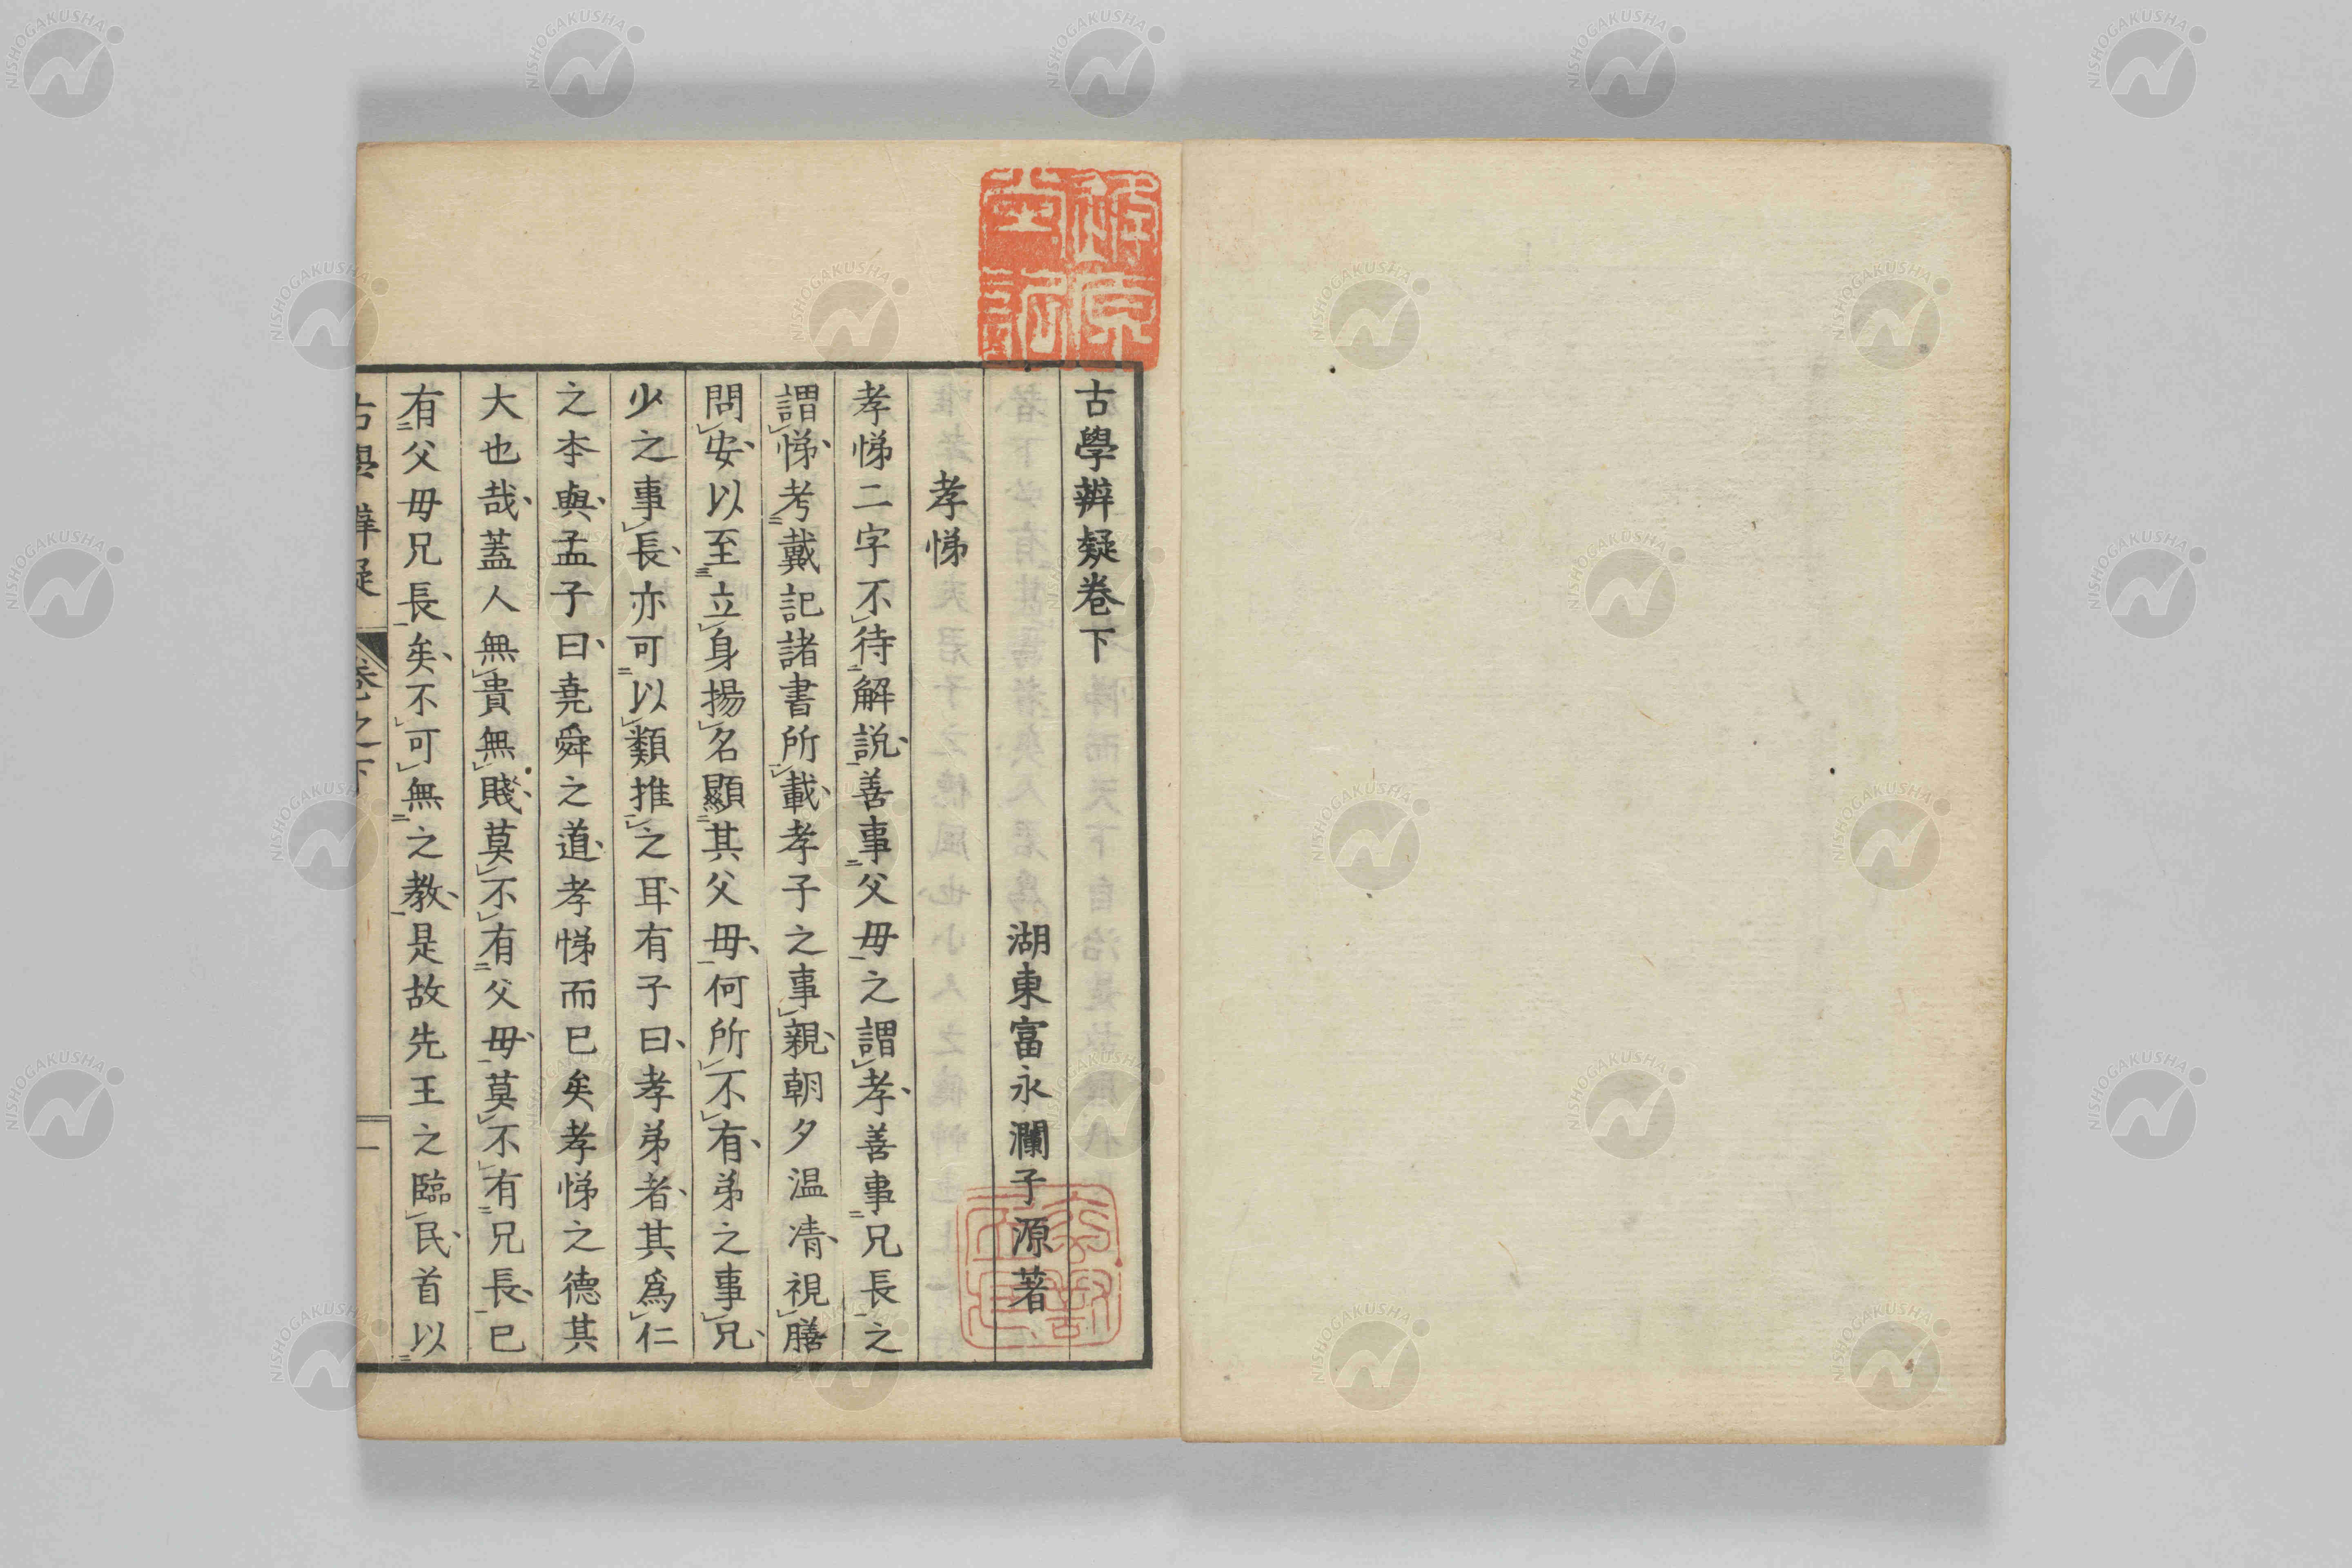 古學辨疑卷下
湖東富永瀾子源著
孝悌
孝悌二字不待解説善事父母之謂孝善事兄長之
謂悌考戴記諸書所載孝子之事親朝夕温凊視膳
問安以至立身揚名顯其父母何所不有弟之事兄
少之事長亦可以類推之耳有子曰孝弟者其爲仁
之本與孟子曰堯舜之道孝悌而已矣孝悌之德其
大也哉蓋人無貴無賤莫不有父母莫不有兄長已
有父母兄長矣不可無之教是故先王之臨民首以
古學辨疑 卷之下 一
NISHOGAKUSHA